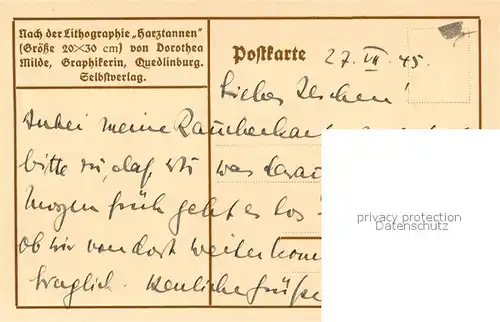 Nach der Lithographie „Harztannen"
(Größe 20×30 cm) von Dorothea
Milde, Graphikerin, Quedlinburg.
Selbstverlag.
Postkarte
27. VII 45.
Liebes
Anbei meine
bitte zu, daß
was
Morgen früh geht es los
ob wir von dort weiter
fraglich. Herzliche Grüße
privacy protection
Datenschutz